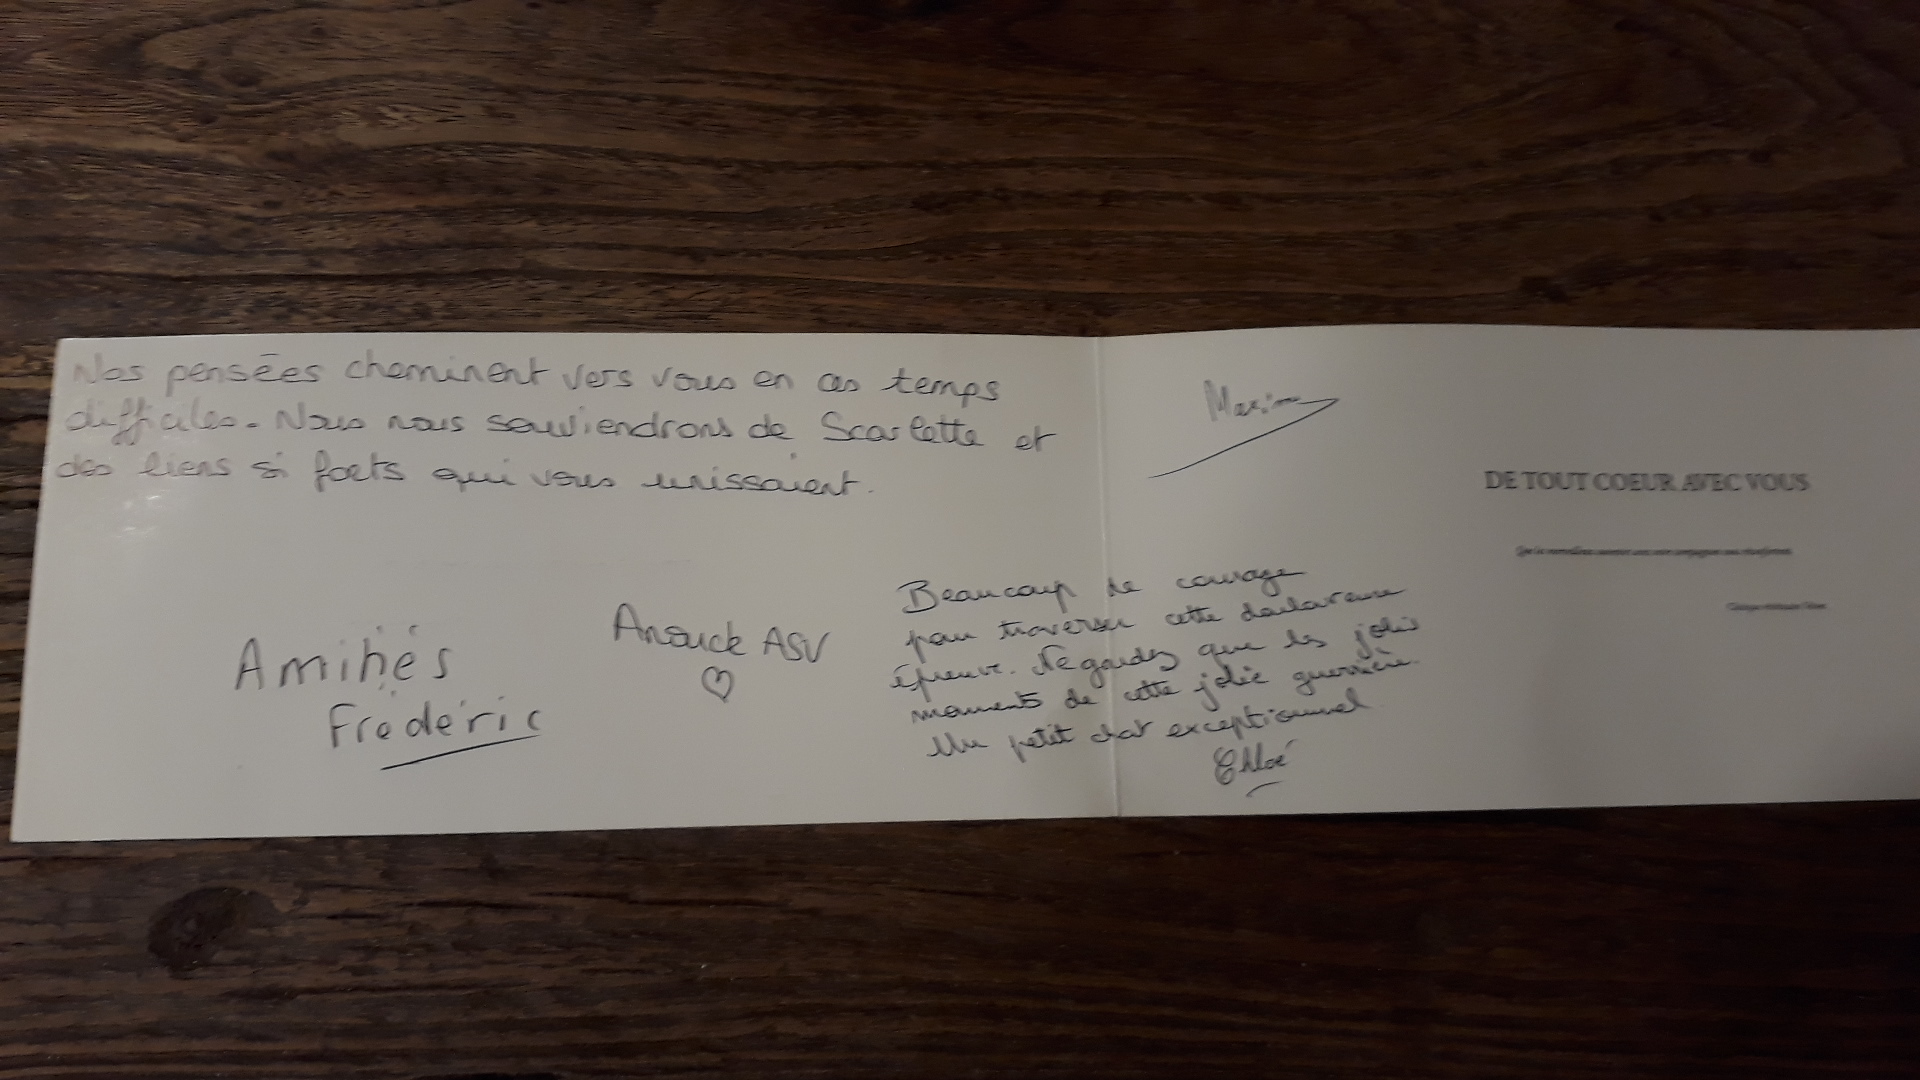 Nos pensées cheminent vers vous en ces temps
difficiles. Nous nous souviendrons de Scarlette et
des liens si forts qui vous unissaient.
Maxime
DE TOUT COEUR AVEC VOUS
Anouck ASV
♡
Frédéric
Beaucoup de courage
pour traverser cette douloureuse
épreuve. Ne gardez que les jolis
moments de cette jolie guerrière.
Un petit chat exceptionnel
Chloé